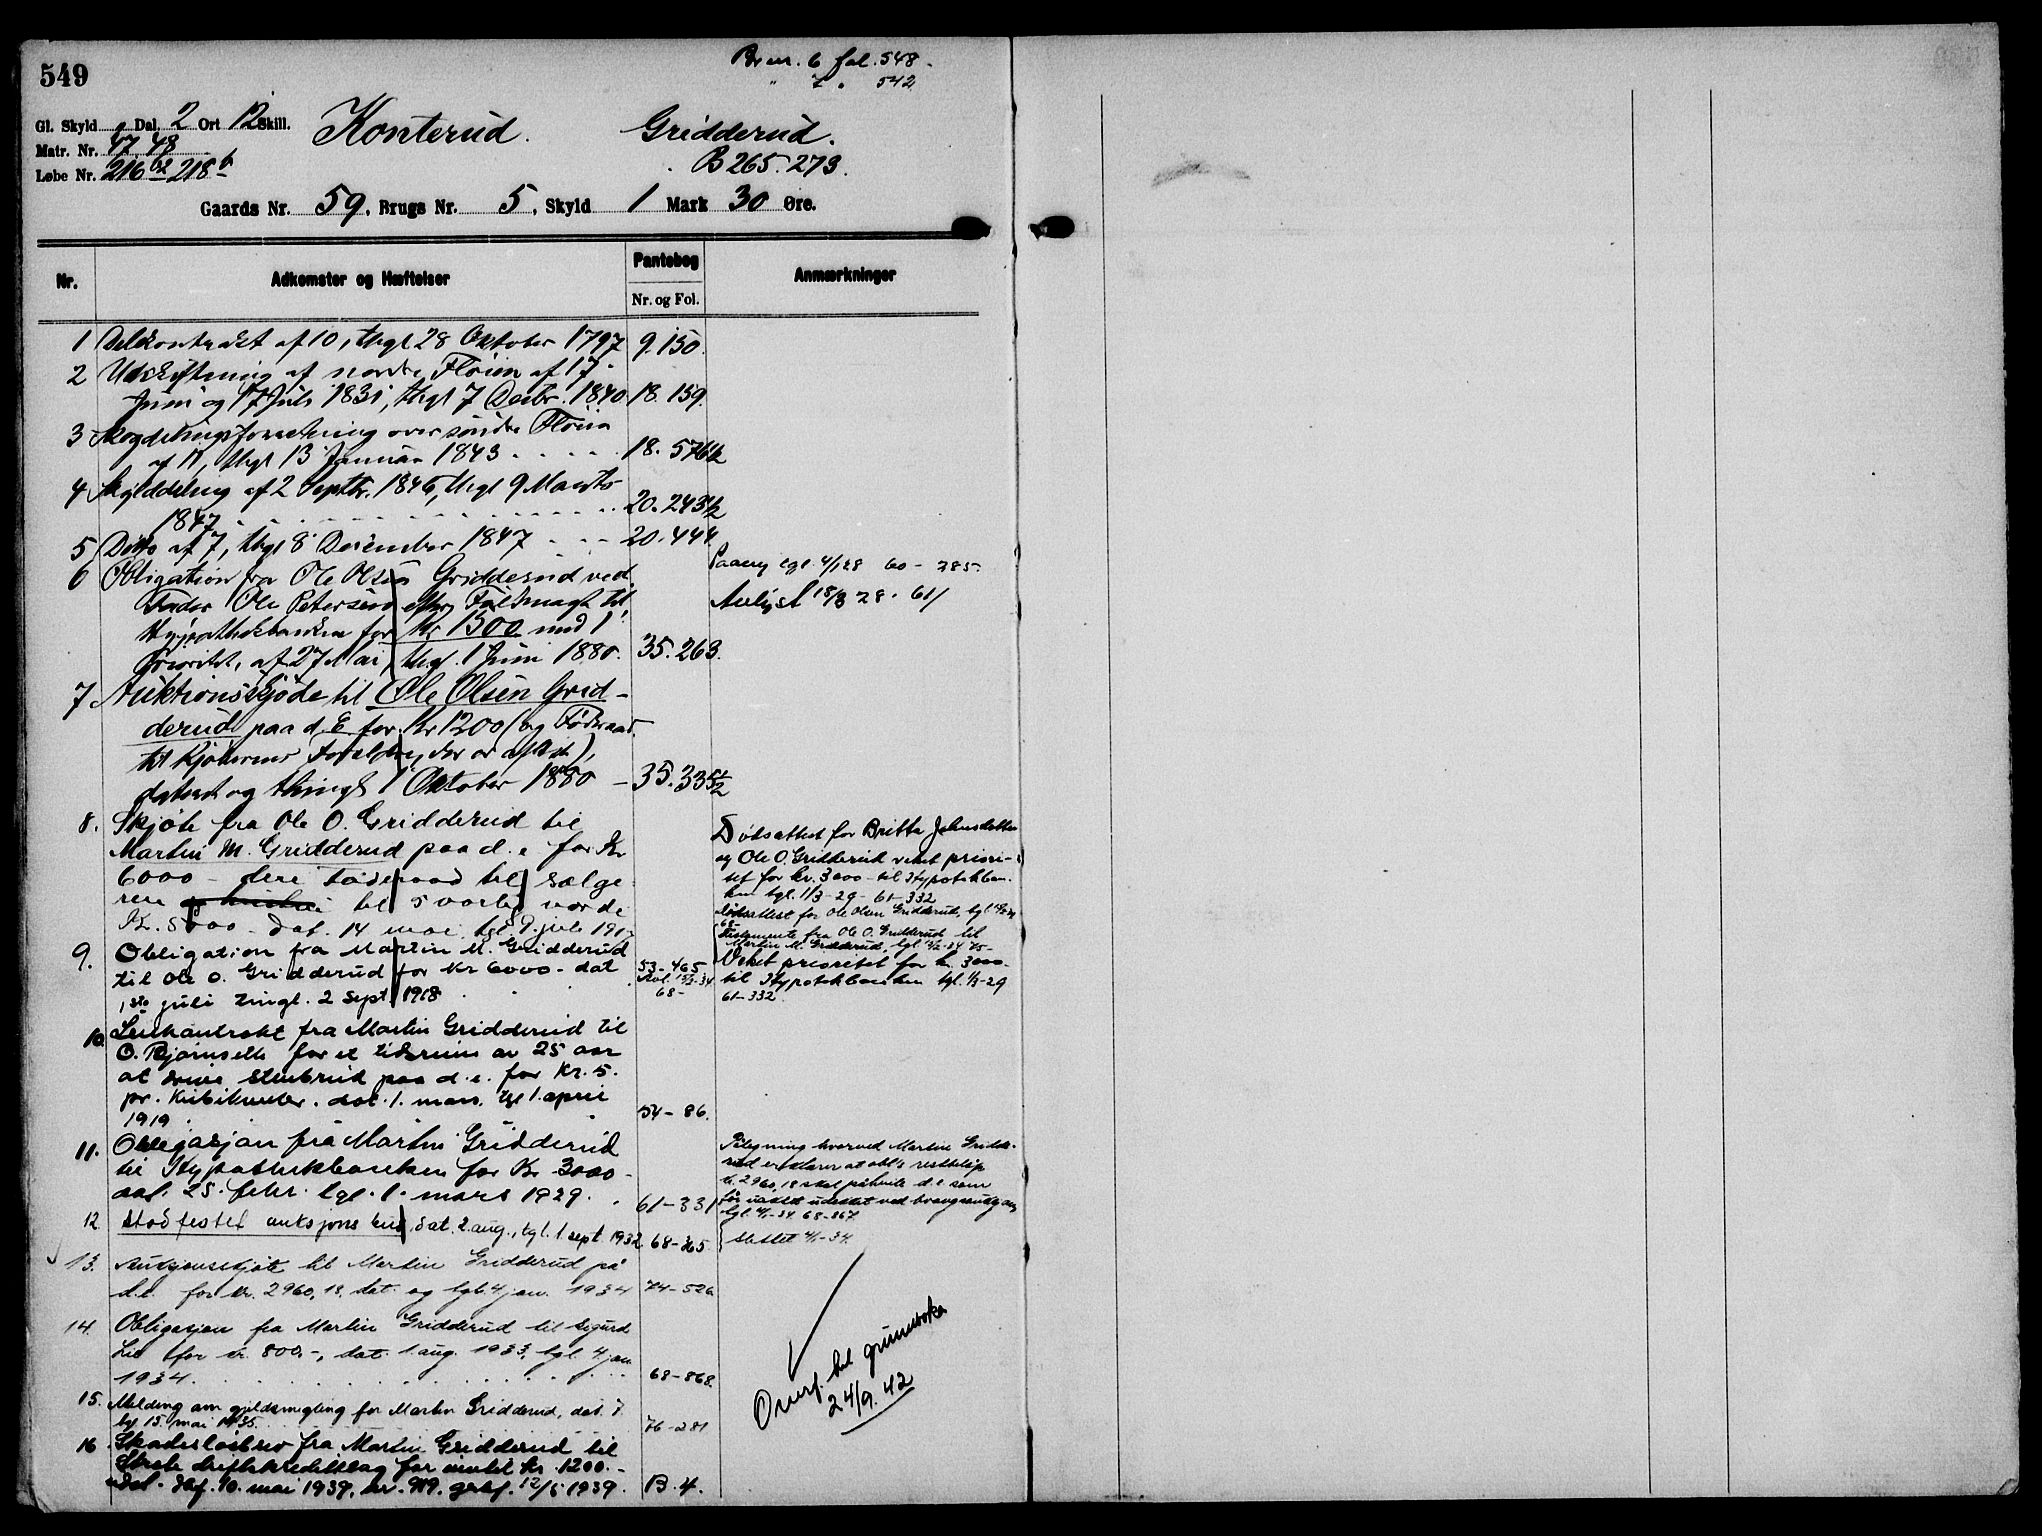 549
Br nr. 6 fol. 548.
" 7 " 542
Gl. Skyld " Dal. 2 Ort 12 Skill.
Konterud. Gridderud.
Matr. Nr. 47. 48
B 265. 273.
Løbe Nr. 216 b2 218 b
Gaards Nr. 59, Brugs Nr. 5, Skyld 1 Mark 30 Øre.
Nr.
Adkomster og Hæftelser
Pantebog
Nr. og Fol.
Anmærkninger
1 Delekontrakt af 10, thgl 28 Oktober 1797 9. 150.
2 Udskiftning af nordre Fløien af 17
Juni og 17 Juli 1831, thgl 7 Decbr. 1840. 18. 159.
3 Skogdelingsforretning over søndre Fløien
af 11, thgl 13 Januar 1843 . . . . 18. 576 1/2
4 Skylddeling af 2 Septbr. 1846, thgl 9 Marts
1847 . . . . 20. 243 1/2
5 Ditto af 7, thgl 8 December 1847 . . . 20. 444.
6 Obligation fra Ole Olsen Gridderud ved
Fader Ole Petersen efter Fuldmagt til
Hypothekbanken for Kr 1300 med 1
Prioritet, af 27 Mai, thgl. 1 Juni 1880. 35. 263.
Paateg tgl. 4/1 28 60 - 285.
Avlyst 18/3 28. 61/
7 Auktionsskjøde til Ole Olsen Grid-
derud paa d. E for Kr 1200 (og Föderaad
til Kjøberens Forældre, der er afløst),
dateret og thingll 1 Oktober 1880 - 35. 335 1/2
8. Skjøte fra Ole O. Gridderud til
Martin M. Gridderud paa d. e for Kr
6000 - dere föderaad til sælge
ren i til 5 aarlig værdi
Kr. 5000 - Dat. 14 mai tgl 9 juli 191
Dødsattest for Britta Johnsdatter
og Ole O. Gridderud veket priori-
tet for kr. 3000 - til Hypotekban-
ken tgl. 1/3 - 29 - 61 - 332
Dødsattest for Ole Olsen Gridderud, tgl.
68 -
Testamente fra Ole O. Gridderud til
Martin M. Gridderud, tgl.
9. Obligation fra Martin M. Gridderud
til Ole O. Gridderud for Kr 6000 - dat
1ste juli tingl. 2 sept 1918 . . .
53 - 465
Avl. 15/3 - 34
68 -
Veket prioritet for kr. 3000 -
til Hypotekbanken tgl. 1/3 - 29
61 - 332.
10. Leiekontrakt fra Martin Gridderud til
O. Bjørnseth for et tidsrum av 25 aar
at drive stenbrud paa d. e. for Kr. 5.
pr. Kubikmeter. dat. 1. mars. tgl 1. april
1919 . . . 54 - 86.
11. Obligasjon fra Martin Gridderud
til Hypothekbanken for Kr 3000 -
dat. 25. febr. tgl. 1. mars 1929. . 61 - 331
Påtegning hvorved Martin Gridde-
rud erklærer at obl's restbeløp
kr. 2960,18 skal påhvile d. e som
før uansett utstedt ved tvangsauksjon
tgl. 4/1 - 34. 68 - 867.
12 Stadfestet auksjons bud, dat. 2. aug., tgl. 1. sept. 1932 68 - 365
slettet 4/1 - 34.
13. Auksjonsskjøte til Martin Gridderud på
d.e. for kr. 2960,18. dat. og tgl. 4 jan. 1934 74 - 526
14. Obligasjon fra Martin Gridderud til Sigurd
Lie for kr. 800.-, dat. 1. aug. 1933, tgl. 4. jan
1934. . . . 68 - 868.
15. Melding om gjeldsmegling for Martin Gridderud, dat. 7.
tgl. 15. mai 1935. . . . 76 - 281
16 Skadesløsbrev fra Martin Gridderud til
driftskredittlag for inntil Kr. 1200. -
Dat. 10. mai 1939, nr. 919. 12/5 1939. B. 4.
Overf. til grunnboka
24/9. 42